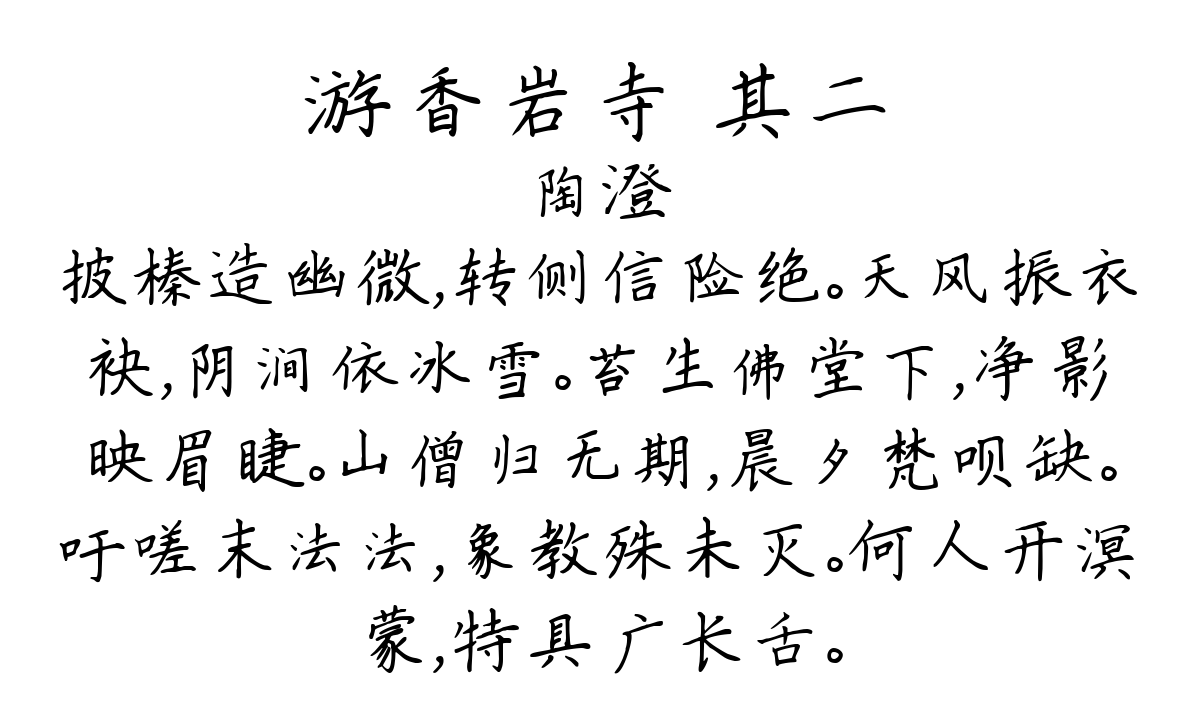 游香岩寺 其二
陶澄
披榛造幽微,转侧信险绝。天风振衣
袂,阴涧依冰雪。苔生佛堂下,净影
映眉睫。山僧归无期,晨夕梵呗缺。
吁嗟末法法,象教殊未灭。何人开溟
蒙,特具广长舌。